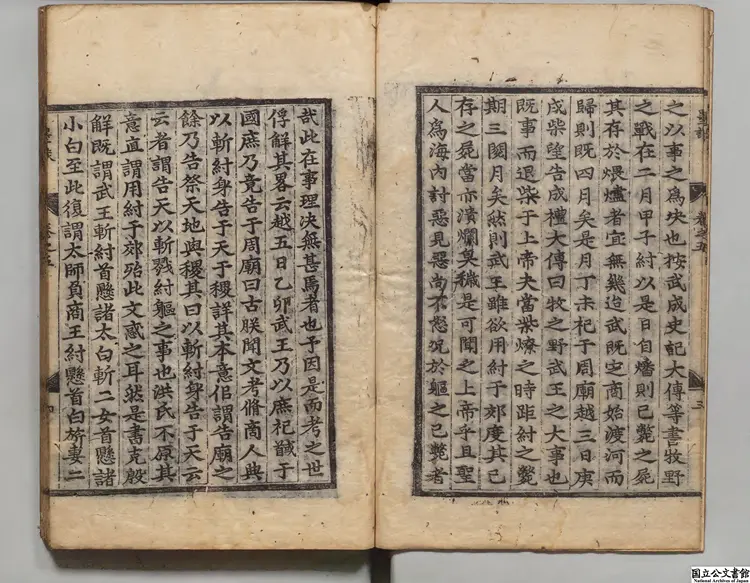 之以事之爲決也按武成史記大傳等書牧野
之戰在二月甲子紂以是日自燔則已斃之屍
其存於煨爐者宜無幾迨武既定商始渡河而
歸則既四月矣是月丁未祀于周廟越三日庚
戌柴望告成禮大傳曰牧之野武王之大事也
既事而退柴于上帝夫當柴燎之時距紂之斃
期三閱月矣然則武王雖欲用紂于郊度其已
存之屍當亦潰爛臭穢是可聞之上帝乎且聖
人爲海內討惡見惡尚不況於軀之已斃者
卷之五
三
哉此在事理決無甚焉者也予因是而考之世
俘解其畧云越五日乙卯武王乃以庶祀馘于
國庶乃竟告于周廟曰古朕聞文考脩商人典
以斬紂身告于天于稷詳其本意但謂告廟之
餘乃告祭天地與稷其曰以斬紂身告于天云
云者謂告天以斬戮紂軀之事也洪氏不原其
意直謂用紂于郊殆此文惑之耳然是書克殷
解既謂武王斬紂首懸諸太白斬二女首懸諸
小白至此復謂太師負商王紂懸首白旂妻二
卷之五
四
国立公文書館
National Archives of Japan